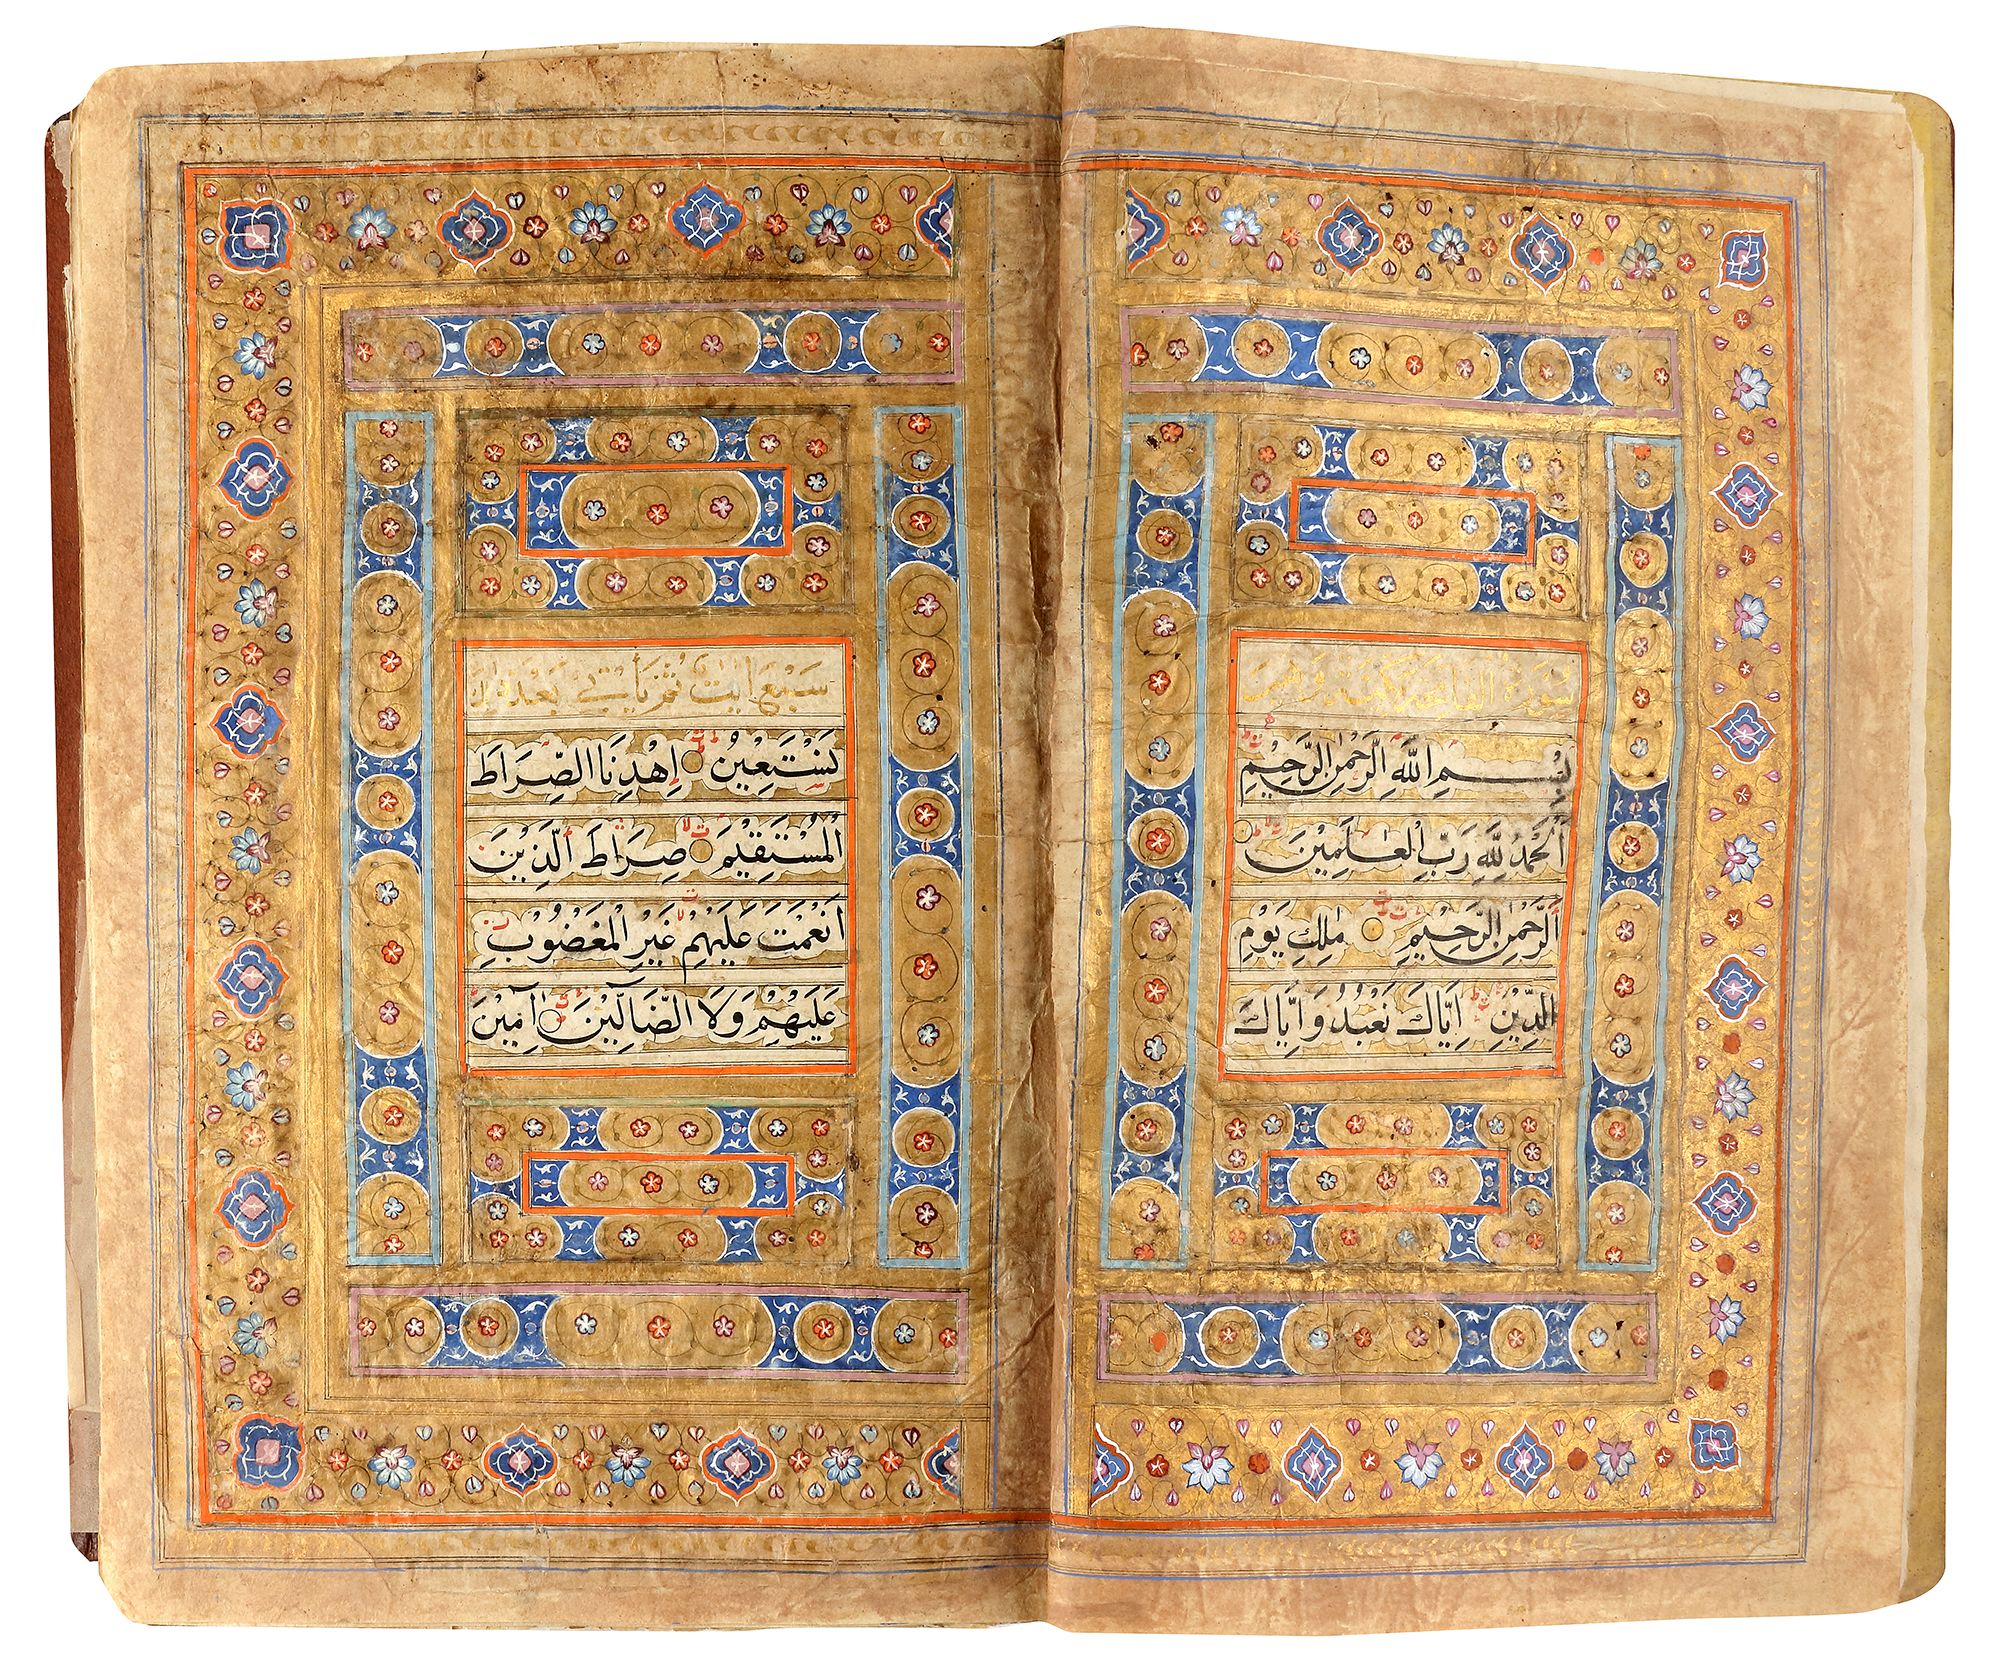 سورة الفاتحة مكية وهي
بِسْمِ اللهِ الرَّحْمٰنِ الرَّحِيْمِ
اَلْحَمْدُ لِلّٰهِ رَبِّ الْعٰلَمِيْنَ
الرَّحْمٰنِ الرَّحِيْمِ مٰلِكِ يَوْمِ
الدِّيْنِ اِيَّاكَ نَعْبُدُ وَاِيَّاكَ
سبع ايت
نَسْتَعِيْنُ اِهْدِنَا الصِّرَاطَ
الْمُسْتَقِيْمَ صِرَاطَ الَّذِيْنَ
اَنْعَمْتَ عَلَيْهِمْ غَيْرِ الْمَغْضُوْبِ
عَلَيْهِمْ وَلَا الضَّآلِّيْنَ آمِيْنَ